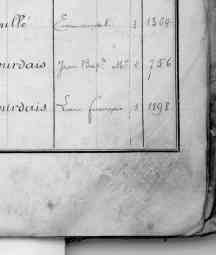 uillé Emmanuel 1 1304
ourdais Jean Bapt. Mie 2 756
ourdais Léon françois 1 1198